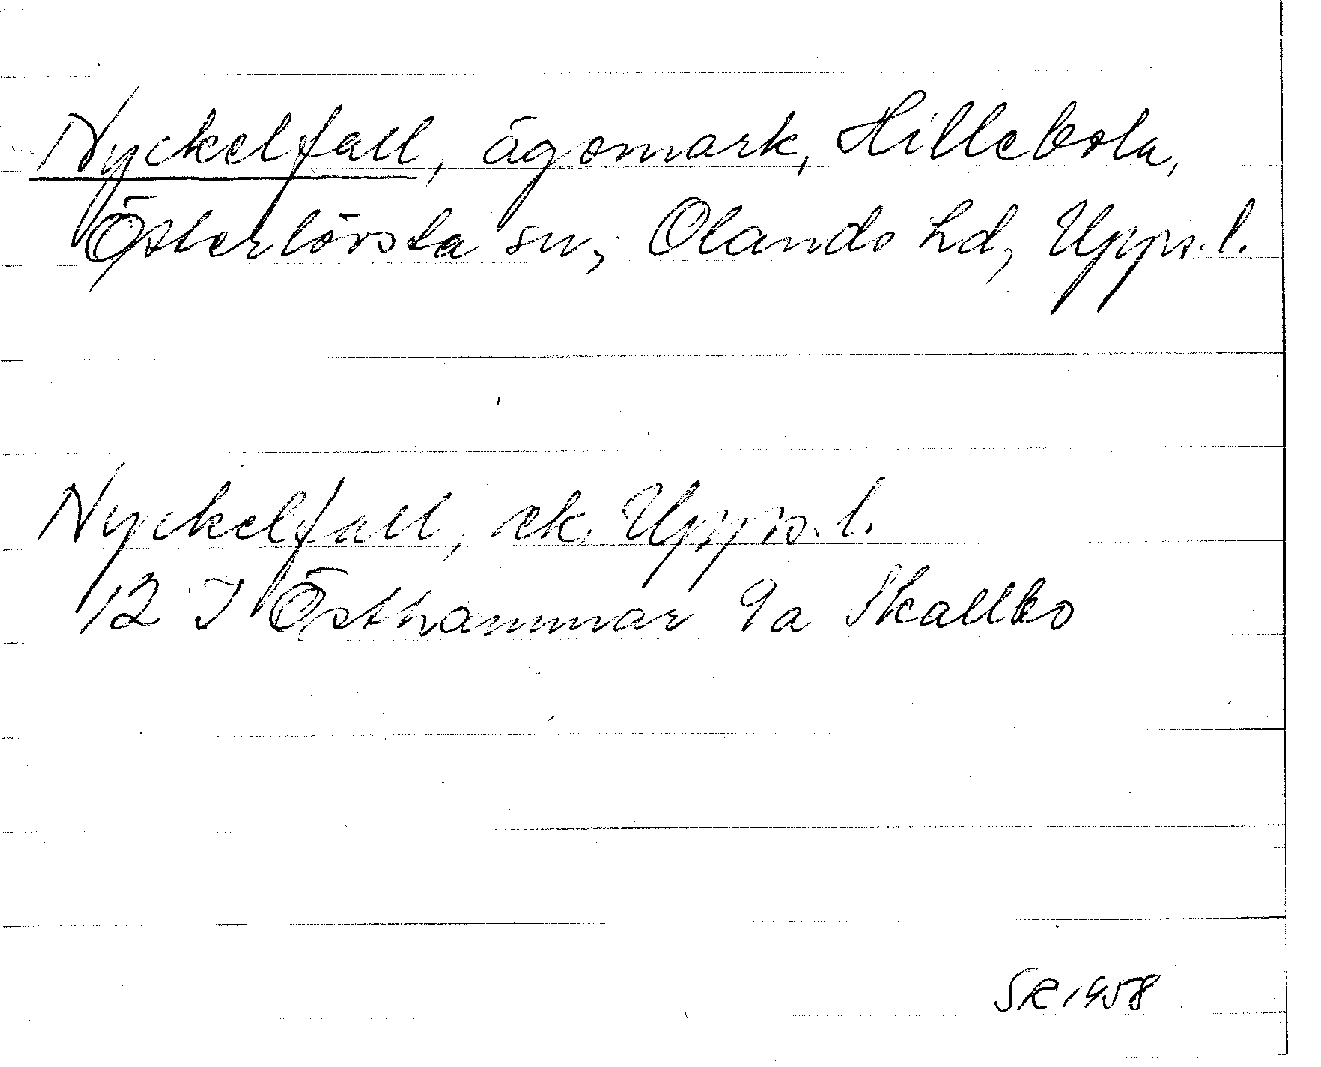 Nyckelfall, ägomark, Hillebola,
Österlövsta sn, Olands hd, Upps.l.
Nyckelfall, ek. Upps.l.
12 I Östhammar 9a Skallbo
SR 1958